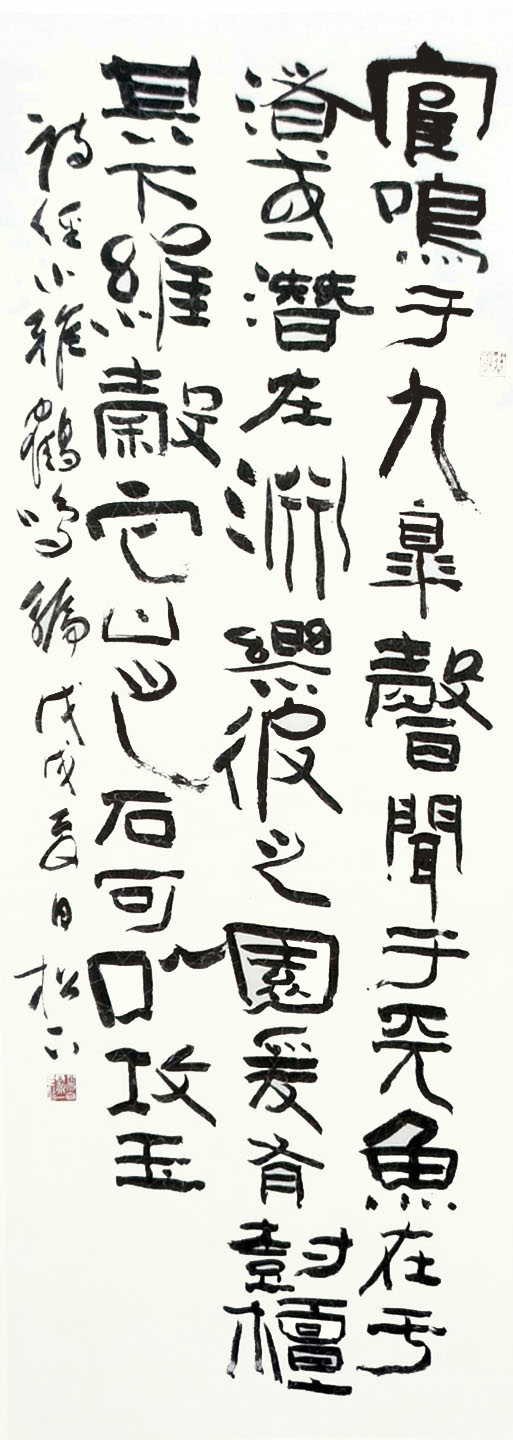 寉鳴于九皋聲聞于天魚在于
渚或潛在淵樂彼之園爰有尌檀
其下維榖它山之石可以攻玉
詩經小雅鶴鳴編戊戌夏日松下